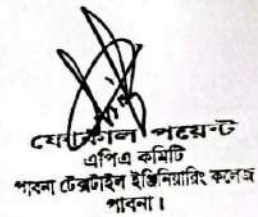 ফোকাল পয়েন্ট
এপিএ কমিটি
পাবনা টেক্সটাইল ইঞ্জিনিয়ারিং কলেজ
পাবনা।